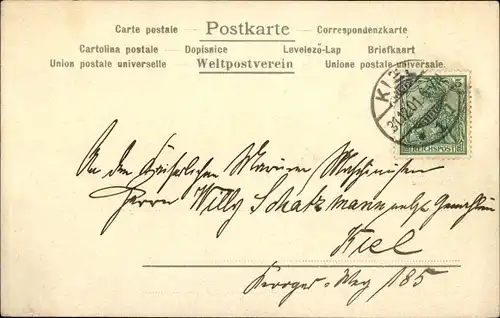 Carte postale — Postkarte — Correspondenzkarte
Cartolina postale — Dopisnice — Levelező-Lap — Briefkaart
Union postale universelle — Weltpostverein — Unione postale universale.
5
KIEL
31.12.01
REICHSPOST
An den Kaiserlichen Marine Maschinisten
Herrn Willy Schatzmann nebst Gemahlin
Kiel
Weg 185